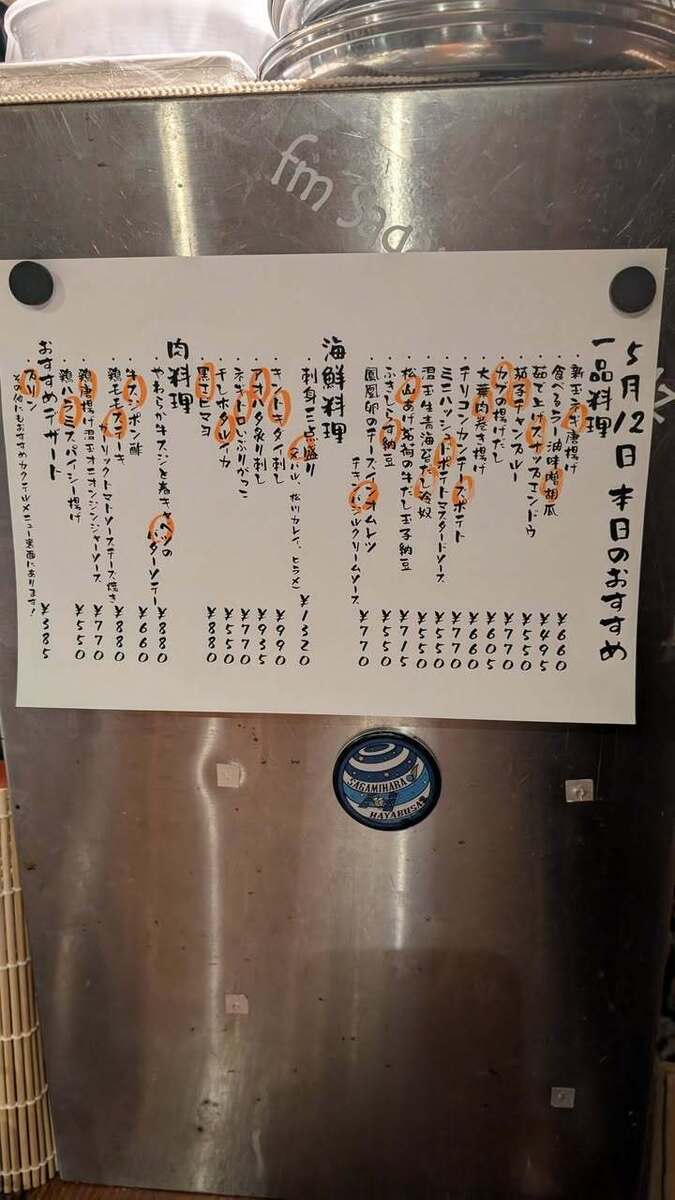 fm Saga
5月12日 本日のおすすめ
一品料理
・新玉ネギ唐揚げ ¥660
・食べるラー油味噌胡瓜 ¥495
・茹で上げスナップエンドウ ¥550
・茄子チャンプルー ¥770
・ナスの揚げだし ¥605
・大葉肉巻き揚げ ¥660
・チリコンカンチーズポテト ¥770
・ミニハッシュドポテトマスタードソース ¥550
・温玉生青海苔だし冷奴 ¥550
・松山あげ 牛だし玉子納豆 ¥715
・ふきしらす納豆 ¥550
・鳳凰卵のチーズオムレツ
チキンバジルクリームソース ¥770
海鮮料理
・刺身三点盛り ¥1320
(メバル、松川カレイ、ヒラメ)
・キントキダイ刺し ¥990
・アオハタ炙り刺し ¥935
・ネギトロいぶりがっこ ¥770
・チレボダルイカ ¥550
・黒エビマヨ ¥880
肉料理
・やわらか牛スジと春キャベツの
バターソテー ¥880
・牛スジポン酢 ¥660
・鶏モモステーキ
ガーリックトマトソースチーズ焼き ¥880
・鶏唐揚げ温玉オニオンジンジャーソース ¥770
・鶏ハラミスパイシー揚げ ¥550
おすすめデザート
・プリン ¥385
その他にもおすすめカクテルメニュー裏面にあります!
SAGAMIHARA
HAYABUSA